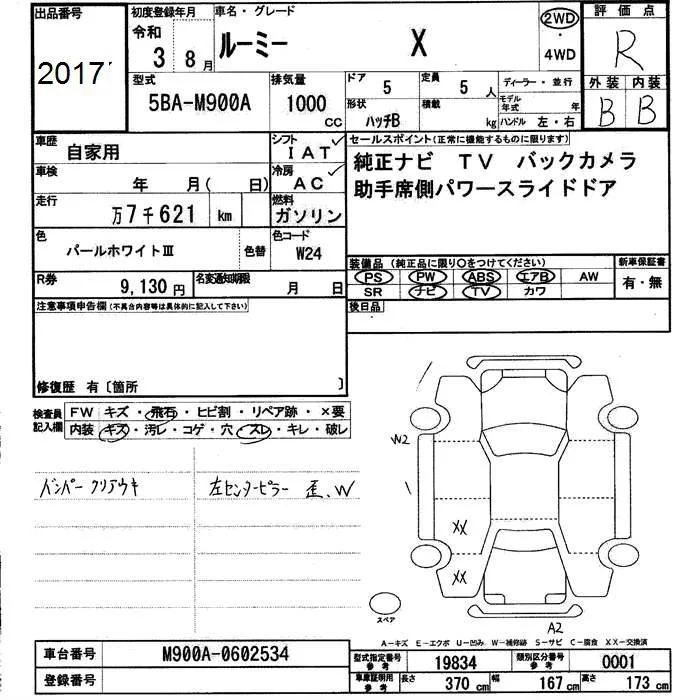 出品番号 初度登録年月 車名・グレード 評価点
2017 令和 3 8月 ルーミー X 2WD ・ 4WD R
型式 排気量 ドア 5 定員 5人 ディーラー・並行 外装 内装
5BA-M900A 1000 CC 形状 ハッチB 積載 kg モデル年式 年 ハンドル 左・右 B B
車歴 自家用 シフト IAT
セールスポイント(正常に機能するものに限ります)
車検 年 月( 日) 冷房 AC
純正ナビ TV バックカメラ
助手席側パワースライドドア
走行 万7千621 km 燃料 ガソリン
色 パールホワイトⅢ 色替 色コード W24
装備品(純正品に限り○をつけてください) 新車保証書
PS PW ABS エアB AW 有・無
SR ナビ TV カワ
R券 9,130円 名変通知期限 月 日
後日品
注意事項申告欄(不具合内容等は具体的に記入して下さい)
修復歴 有〔箇所 〕
検査員記入欄 FW キズ・飛石・ヒビ割・リペア跡・×要
内装 キズ・汚レ・コゲ・穴・スレ・キレ・破レ
W2
バンパークリアウキ 左センターピラー 歪、W
XX
XX
スペア
A2
A-キズ E-エクボ U-凹み W-補修跡 S-サビ C-腐食 XX-交換済
車台番号 M900A-0602534
型式指定番号 参考 19834 類別区分番号 参考 0001
登録番号
車庫証明用 参考 長さ 370cm 幅 167cm 高さ 173cm